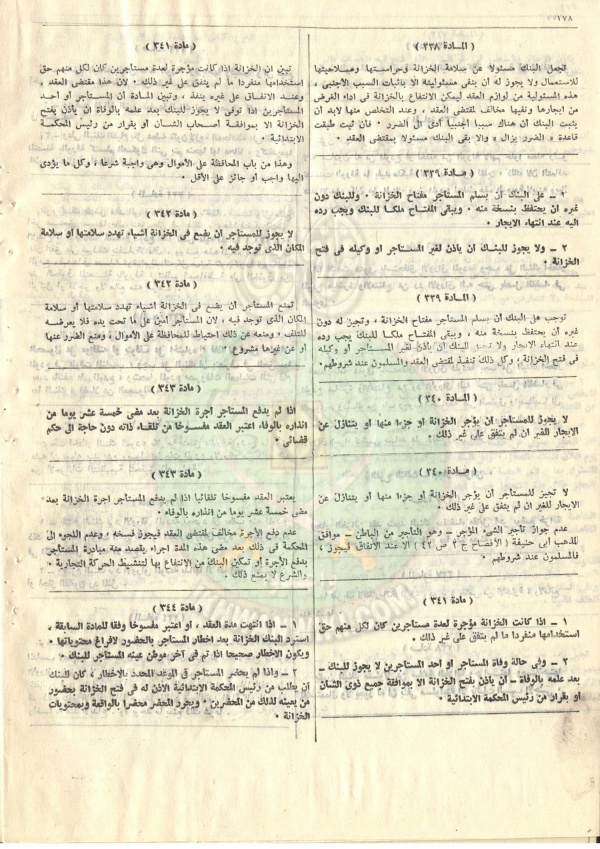 ١٧٨
( المادة ٣٣٨ )
تجعل البنك مسئولا عن سلامة الخزانة وحراستها وصلاحيتها
للاستعمال ولا يجوز له أن ينفى مسئوليته الا باثبات السبب الأجنبى ،
هذه المسئولية من لوازم العقد ليمكن الانتفاع بالخزانة فى أداء الغرض
من ايجارها ونفيها مخالف لمقتضى العقد ، وعند التخلص منها لابد أن
يثبت البنك أن هناك سببا أجنبيا أدى الى الضرر ٠ فان ثبت طبقت
قاعدة « الضرر يزال » والا بقى البنك مسئولا بمقتضى العقد ٠
( مادة ٣٣٩ )
١ ــ على البنك أن يسلم المستأجر مفتاح الخزانة ٠ وللبنك دون
غيره أن يحتفظ بنسخة منه ٠ ويبقى المفتاح ملكا للبنك ويجب رده
اليه عند انتهاء الايجار ٠
٢ ــ ولا يجوز للبنك أن يأذن لغير المستأجر أو وكيله فى فتح
الخزانة ٠
( المادة ٣٣٩ )
توجب على البنك أن يسلم المستأجر مفتاح الخزانة ، وتجيز له دون
غيره أن يحتفظ بنسخة منه ، ويبقى المفتاح ملكا للبنك يجب رده
عند انتهاء الايجار ولا تجيز للبنك أن يأذن لغير المستأجر أو وكيله
فى فتح الخزانة، وكل ذلك تنفيذ لمقتضى العقد والمسلمون عند شروطهم٠
( المادة ٣٤٠ )
لا يجوز للمستأجر أن يؤجر الخزانة أو جزءا منها أو يتنازل عن
الايجار للغير ان لم يتفق على غير ذلك ٠
( مادة ٣٤٠ )
لا تجيز للمستأجر أن يؤجر الخزانة أو جزءا منها أو يتنازل عن
الايجار للغير ان لم يتفق على غير ذلك ٠
عدم جواز تأجير الشىء المؤجر ــ وهو التأجير من الباطن ــ موافق
لمذهب أبى حنيفة ( الأفصاح ج ٢ ص ٤٢ ) الا عند الاتفاق فيجوز ،
فالمسلمون عند شروطهم ٠
( مادة ٣٤١ )
١ ــ اذا كانت الخزانة مؤجرة لعدة مستأجرين كان لكل منهم حق
استخدامها منفردا ما لم يتفق على غير ذلك ٠
٢ ــ وفى حالة وفاة المستأجر أو أحد المستأجرين لا يجوز للبنك ــ
بعد علمه بالوفاة ــ أن يأذن بفتح الخزانة الا بموافقة جميع ذوى الشأن
أو بقرار من رئيس المحكمة الابتدائية ٠
( مادة ٣٤١ )
تبين أن الخزانة اذا كانت مؤجرة لعدة مستأجرين كان لكل منهم حق
استخدامها منفردا ما لم يتفق على غير ذلك ٠ لأن هذا مقتضى العقد ،
وعند الاتفاق على غيره ينفذ ، وتبين المادة أن المستأجر أو أحد
المستأجرين اذا توفى لا يجوز للبنك بعد علمه بالوفاة أن يأذن بفتح
الخزانة الا بموافقة أصحاب الشأن أو بقرار من رئيس المحكمة
الابتدائية ٠
وهذا من باب المحافظة على الأموال وهى واجبة شرعا ، وكل ما يؤدى
اليها واجب أو جائز على الأقل ٠
( مادة ٣٤٢ )
لا يجوز للمستأجر أن يضع فى الخزانة أشياء تهدد سلامتها أو سلامة
المكان الذى توجد فيه ٠
( مادة ٣٤٢ )
تمنع المستأجر أن يضع فى الخزانة أشياء تهدد سلامتها أو سلامة
المكان الذى توجد فيه ، لأن المستأجر أمين على ما تحت يده فلا يعرضه
للتلف ، ومنعه عن ذلك احتياط للمحافظة على الأموال ، ومنع الضرر عنها
أو عن غيرها مشروع ٠
( مادة ٣٤٣ )
اذا لم يدفع المستأجر أجرة الخزانة بعد مضى خمسة عشر يوما من
انذاره بالوفاء اعتبر العقد مفسوخا من تلقاء ذاته دون حاجة الى حكم
قضائى ٠
( مادة ٣٤٣ )
يعتبر العقد مفسوخا تلقائيا اذا لم يدفع المستأجر أجرة الخزانة بعد
مضى خمسة عشر يوما من انذاره بالوفاء ٠
عدم دفع الأجرة مخالف لمقتضى العقد فيجوز فسخه ، وعدم اللجوء الى
المحكمة فى ذلك بعد مضى هذه المدة اجراء يقصد منه مبادرة المستأجر
بدفع الأجرة أو تمكين البنك من الانتفاع بها لتنشيط الحركة التجارية ٠
والشرع لا يمنع ذلك ٠
( مادة ٣٤٤ )
١ ــ اذا انتهت مدة العقد ، أو اعتبر مفسوخا وفقا للمادة السابقة ،
استرد البنك الخزانة بعد اخطار المستأجر بالحضور لافراغ محتوياتها ٠
ويكون الاخطار صحيحا اذا تم فى آخر موطن عينه المستأجر للبنك ٠
٢ ــ واذا لم يحضر المستأجر فى الموعد المحدد بالاخطار ، كان للبنك
أن يطلب من رئيس المحكمة الابتدائية الاذن له فى فتح الخزانة بحضور
من يعينه لذلك من المحضرين ٠ ويحرر المحضر محضرا بالواقعة وبمحتويات
الخزانة ٠